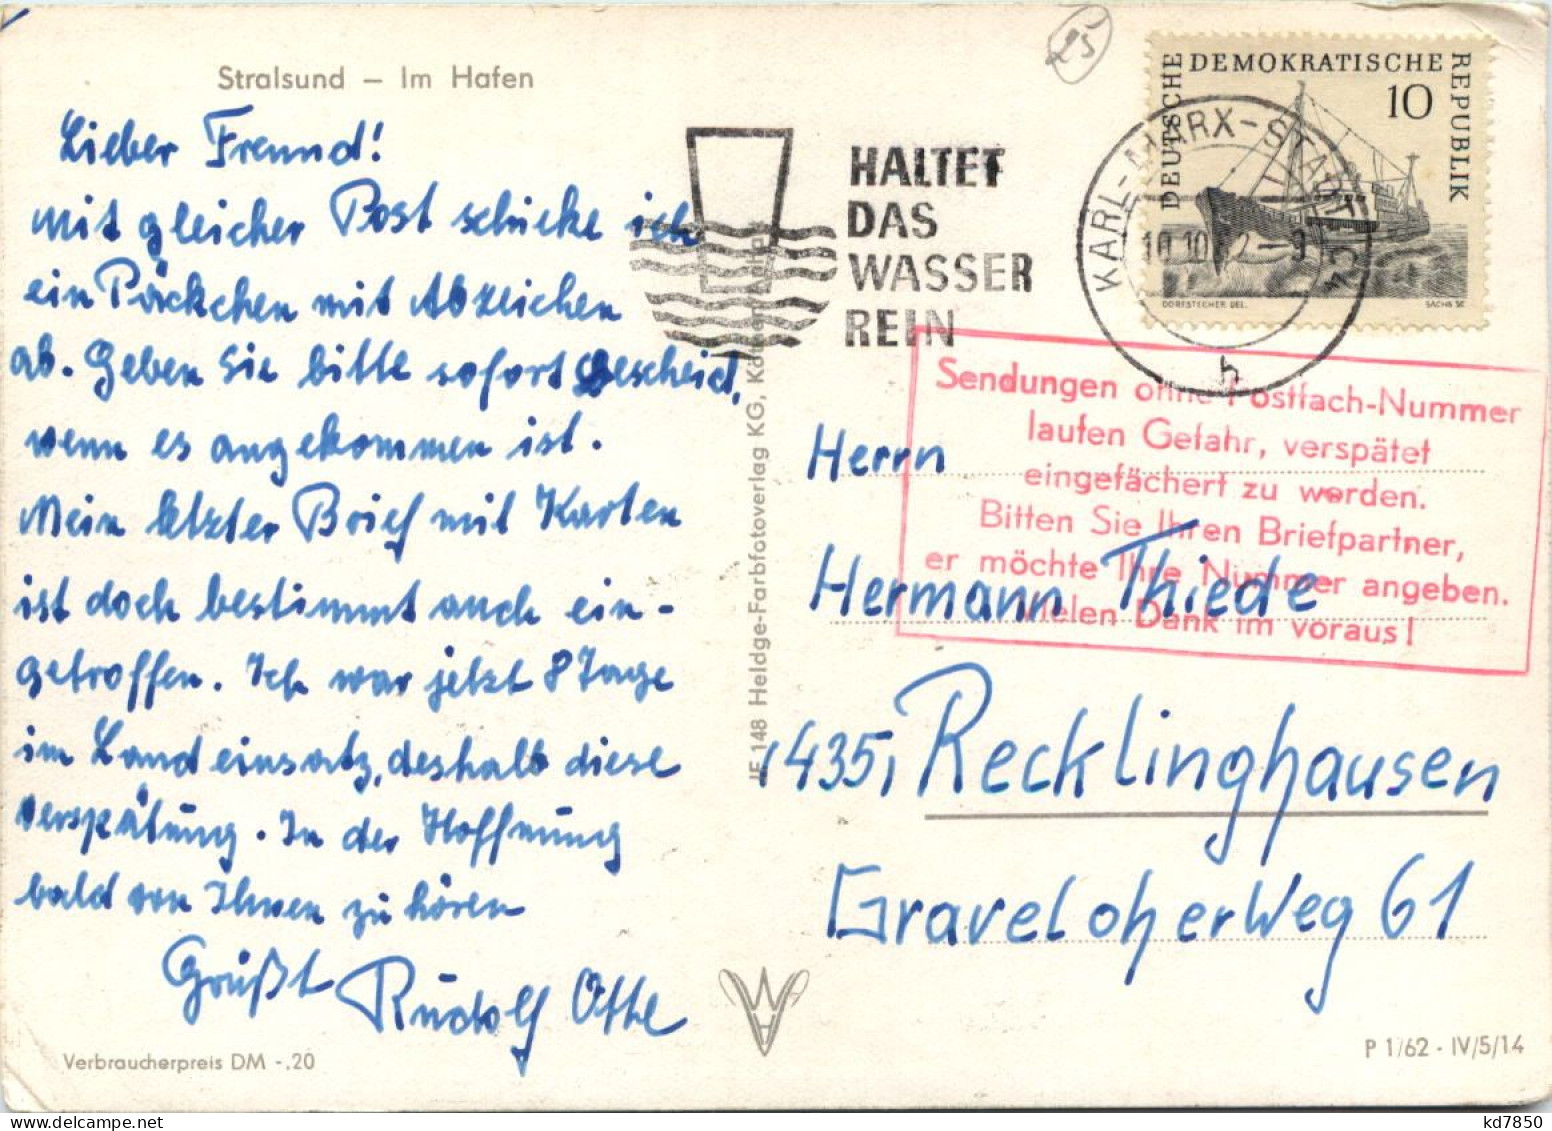 Stralsund – Im Hafen
25
Lieber Freund!
mit gleicher Post schicke ich
ein Päckchen mit Abzeichen
ab. Geben Sie bitte sofort Bescheid,
wenn es angekommen ist.
Mein letzter Brief mit Karten
ist doch bestimmt auch ein-
getroffen. Ich war jetzt 8 Tage
im Landeinsatz, deshalb diese
Verspätung. In der Hoffnung
bald von Ihnen zu hören
Grüßt Rudolf Otte
Verbraucherpreis DM -.20
JF 148 Heldge-Farbfotoverlag KG, Köthen
HALTET
DAS
WASSER
REIN
DEUTSCHE DEMOKRATISCHE REPUBLIK
10
DORFSTECHER DEL.
SACHS SC
KARL-MARX-STADT C4
10.10. 2-9
h
Sendungen ohne Postfach-Nummer
laufen Gefahr, verspätet
eingefächert zu werden.
Bitten Sie Ihren Briefpartner,
er möchte Ihre Nummer angeben.
Vielen Dank im voraus!
Herrn
Hermann Thiede
435, Recklinghausen
Graveloher Weg 61
P 1/62 - IV/5/14
kd7850